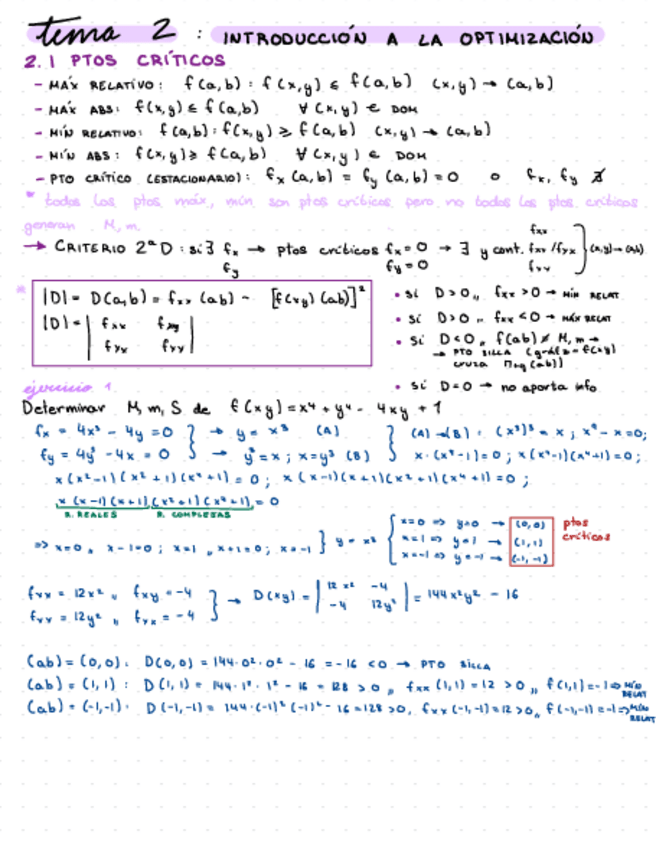 tema 2 : INTRODUCCIÓN A LA OPTIMIZACIÓN
2.1 PTOS CRÍTICOS
- MÁX RELATIVO: f(a,b) : f(x,y) ≤ f(a,b) (x,y) → (a,b)
- MÁX ABS: f(x,y) ≤ f(a,b) ∀ (x,y) ∈ DOM
- MÍN RELATIVO: f(a,b) : f(x,y) ≥ f(a,b) (x,y) → (a,b)
- MÍN ABS: f(x,y) ≥ f(a,b) ∀ (x,y) ∈ DOM
- PTO CRÍTICO (ESTACIONARIO): fx (a,b) = fy (a,b) = 0 o fx, fy ∄
* todos los ptos máx, mín son ptos críticos pero no todos los ptos críticos
generan M, m.
→ CRITERIO 2ª D : si ∃ fx fy → ptos críticos fx = 0 fy = 0 → ∃ y cont. fxx fxy / fyx fyy } (x,y) → (a,b)
* |D| = D(a,b) = fxx (ab) - [f(xy) (ab)]²
|D| = | fxx fxy |
| fyx fyy |
• si D > 0 ,, fxx > 0 → MÍN RELAT
• si D > 0 ,, fxx < 0 → MÁX RELAT
• si D < 0 , f(ab) ≠ M, m →
→ PTO SILLA (gráf z = f(xy)
cruza Πtg (ab))
• si D = 0 → no aporta info
ejercicio 1
Determinar M, m, S de f(xy) = x⁴ + y⁴ - 4xy + 1
fx = 4x³ - 4y = 0 } → y = x³ (A) } (A) → (B) : (x³)³ = x ; x⁹ - x = 0;
fy = 4y³ - 4x = 0 } → y³ = x ; x = y³ (B) } x · (x⁸-1) = 0 ; x (x⁴-1)(x⁴+1) = 0 ;
x (x²-1)(x²+1)(x⁴+1) = 0 ; x (x-1)(x+1)(x²+1)(x⁴+1) = 0 ;
x (x-1)(x+1)(x²+1)(x⁴+1) = 0
R. REALES R. COMPLEJAS
⇒ x=0 ,, x-1=0 ; x=1 ,, x+1=0 ; x=-1 } y = x³ { x=0 ⇒ y=0 → (0,0) ptos
x=1 ⇒ y=1 → (1,1) críticos
x=-1 ⇒ y=-1 → (-1,-1)
fxx = 12x² ,, fxy = -4 } → D(xy) = | 12x² -4 | = 144x²y² - 16
fyy = 12y² ,, fyx = -4 } | -4 12y² |
(ab) = (0,0) : D(0,0) = 144·0²·0² - 16 = -16 < 0 → PTO SILLA
(ab) = (1,1) : D(1,1) = 144·1²·1² - 16 = 128 > 0 ,, fxx (1,1) = 12 > 0 ,, f(1,1) = -1 ⇒ MÍN RELAT
(ab) = (-1,-1) : D(-1,-1) = 144·(-1)²(-1)² - 16 = 128 > 0, fxx (-1,-1) = 12 > 0,, f(-1,-1) = -1 ⇒ MÍN RELAT